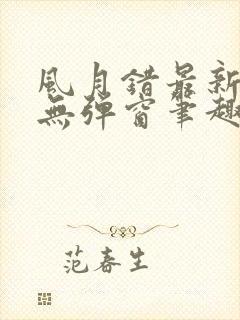 風月錯最新
無彈窗筆趣
范春生